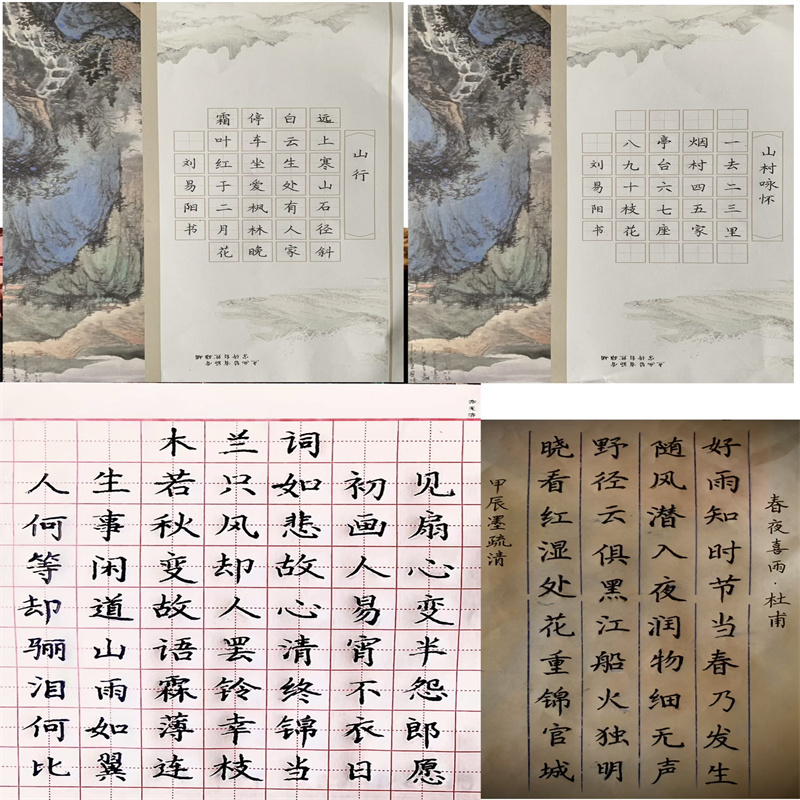 山行
远上寒山石径斜
白云生处有人家
停车坐爱枫林晚
霜叶红于二月花
刘易阳书
山村咏怀
一去二三里
烟村四五家
亭台六七座
八九十枝花
刘易阳书
木兰词
人生若只如初见
何事秋风悲画扇
等闲变却故人心
却道故人心易变
骊山语罢清宵半
泪雨霖铃终不怨
何如薄幸锦衣郎
比翼连枝当日愿
春夜喜雨·杜甫
好雨知时节当春乃发生
随风潜入夜润物细无声
野径云俱黑江船火独明
晓看红湿处花重锦官城
甲辰墨疏清